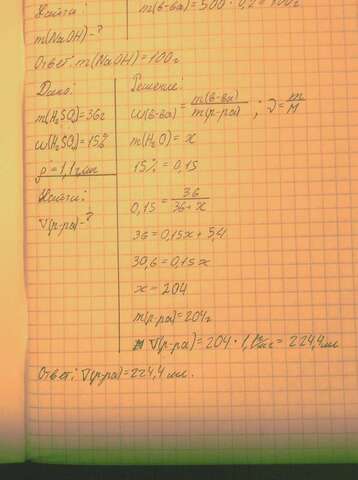 Найти:
m(в-ва)=500·0,2=100г
m(NaOH)-?
Ответ: m(NaOH)=100г
Дано:
Решение:
m(H₂SO₄)=36г
ω(в-ва)=m(в-ва)/m(р-ра); ν=m/M
ω(H₂SO₄)=15%
m(H₂O)=x
ρ=1,1г/мл
15%=0,15
Найти:
0,15=36/36+x
V(р-ра)-?
36=0,15x+5,4
30,6=0,15x
x=204
m(р-ра)=204г
V(р-ра)=204·1,1г/мл=224,4мл
Ответ: V(р-ра)=224,4мл.